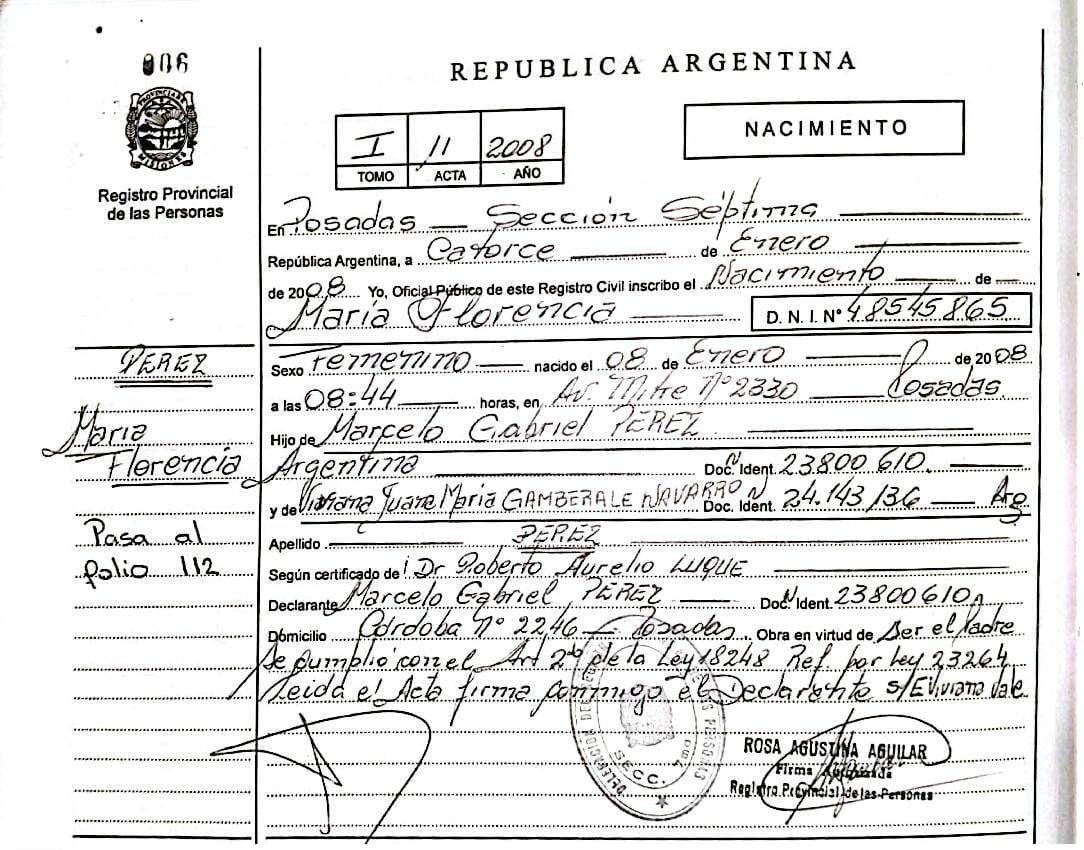 006
REPUBLICA ARGENTINA
PROVINCIA DE MISIONES
Registro Provincial
de las Personas
I 11 2008
TOMO ACTA AÑO
NACIMIENTO
En Posadas — Sección Séptima
República Argentina, a Catorce de Enero
de 2008 Yo, Oficial Público de este Registro Civil inscribo el Nacimiento de
María Florencia D. N. I. Nº 48545865
PEREZ
María
Florencia
Pasa al
folio 112
Sexo Femenino nacido el 08 de Enero de 2008
a las 08:44 horas, en Av. Mitre Nº 2330 Posadas
Hijo de Marcelo Gabriel PEREZ
Argentina Doc. Ident. 23.800.610
y de Viviana Juana Maria GAMBERALE NAVARRO Doc. Ident. 24.143.136 — Arg
Apellido PEREZ
Según certificado de Dr Roberto Aurelio LUQUE
Declarante Marcelo Gabriel PEREZ Doc. Ident. 23800610
Domicilio Córdoba Nº 2246 — Posadas. Obra en virtud de Ser el Padre
Se cumplió con el Art 2do de la Ley 18248 Ref. por Ley 23264
Leida el Acta firma conmigo el Declarante s/E Viviana Vale
SECC. 7ma
ROSA AGUSTINA AGUILAR
Firma Autorizada
Registro Provincial de las Personas